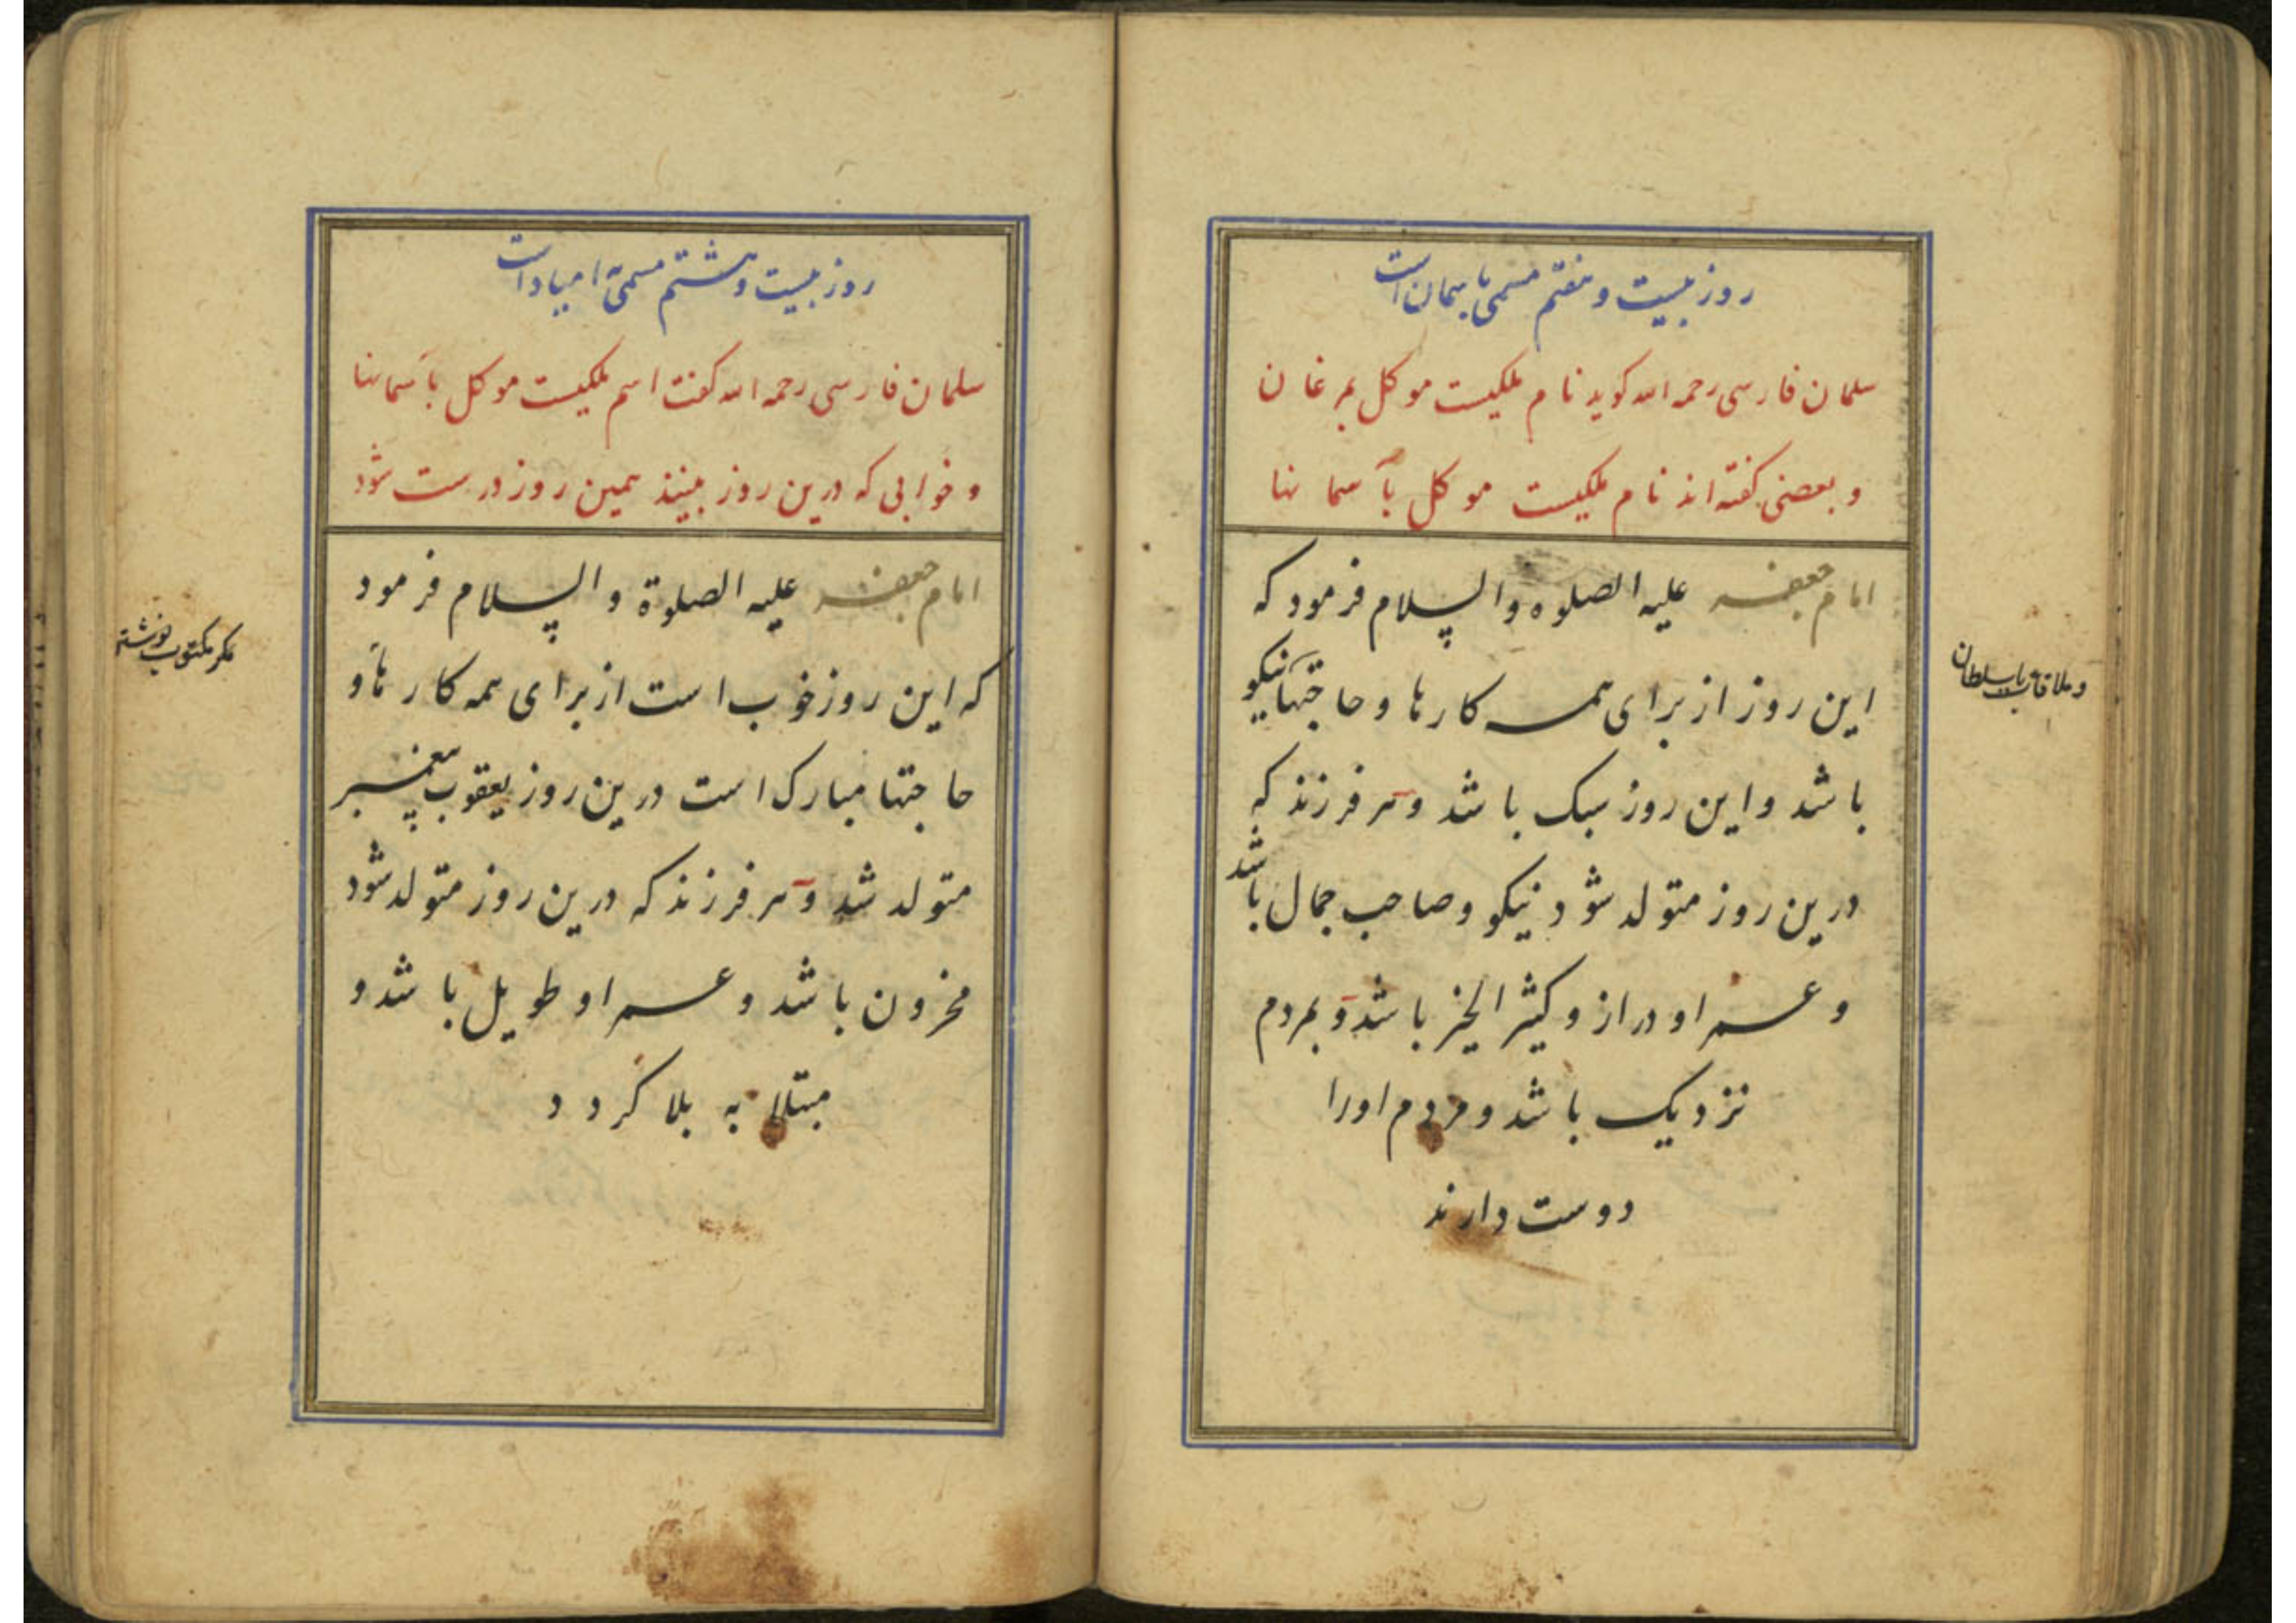 روز بیست و هفتم مسمی باسمان است
سلمان فارسی رحمه الله کوید نام ملکیست موکل بمرغان
و بعضی کفته اند نام ملکیست موکل بآسمانها
امام جعفر علیه الصلوه والسلام فرمود که
این روز از برای همه کارها و حاجتها نیکو
باشد و این روز سبک باشد و هر فرزند که
درین روز متولد شود نیکو و صاحب جمال باشد
و عمر او دراز و کثیر الخیر باشد و بمردم
نزدیک باشد و مردم او را
دوست دارند
و ملاقات با سلطان
روز بیست و هشتم مسمی است
سلمان فارسی رحمه الله کفت اسم ملکیست موکل بآسمانها
و خوابی که درین روز بینند همین روز درست شود
امام جعفر علیه الصلوة والسلام فرمود
که این روز خوب است از برای همه کارها و
حاجتها مبارک است درین روز یعقوب پیغمبر
متولد شد و هر فرزند که درین روز متولد شود
محزون باشد و عمر او طویل باشد و
مبتلا به بلا کردد
مکر مکتوب نوشتن